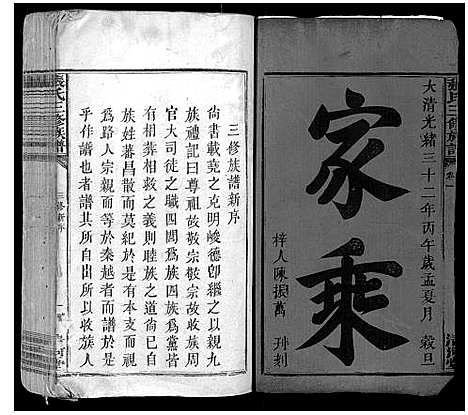 張氏三修族譜
卷一
大清光緒三十二年丙午歲孟夏月 穀旦
家乘
梓人陳振萬 刊刻
三修族譜新序
尚書載堯之克明峻德卽繼之以親九
族禮記曰尊祖故敬宗敬宗故收族周
官大司徒之職四閭爲族四族爲黨皆
有相葬相救之義則睦族之道尚已自
族姓蕃昌散而莫紀於是有本支而漸
爲路人宗親而等於秦越者而譜於是
乎作譜也者譜其所自出所以收族人
張氏三修族譜
三修新序